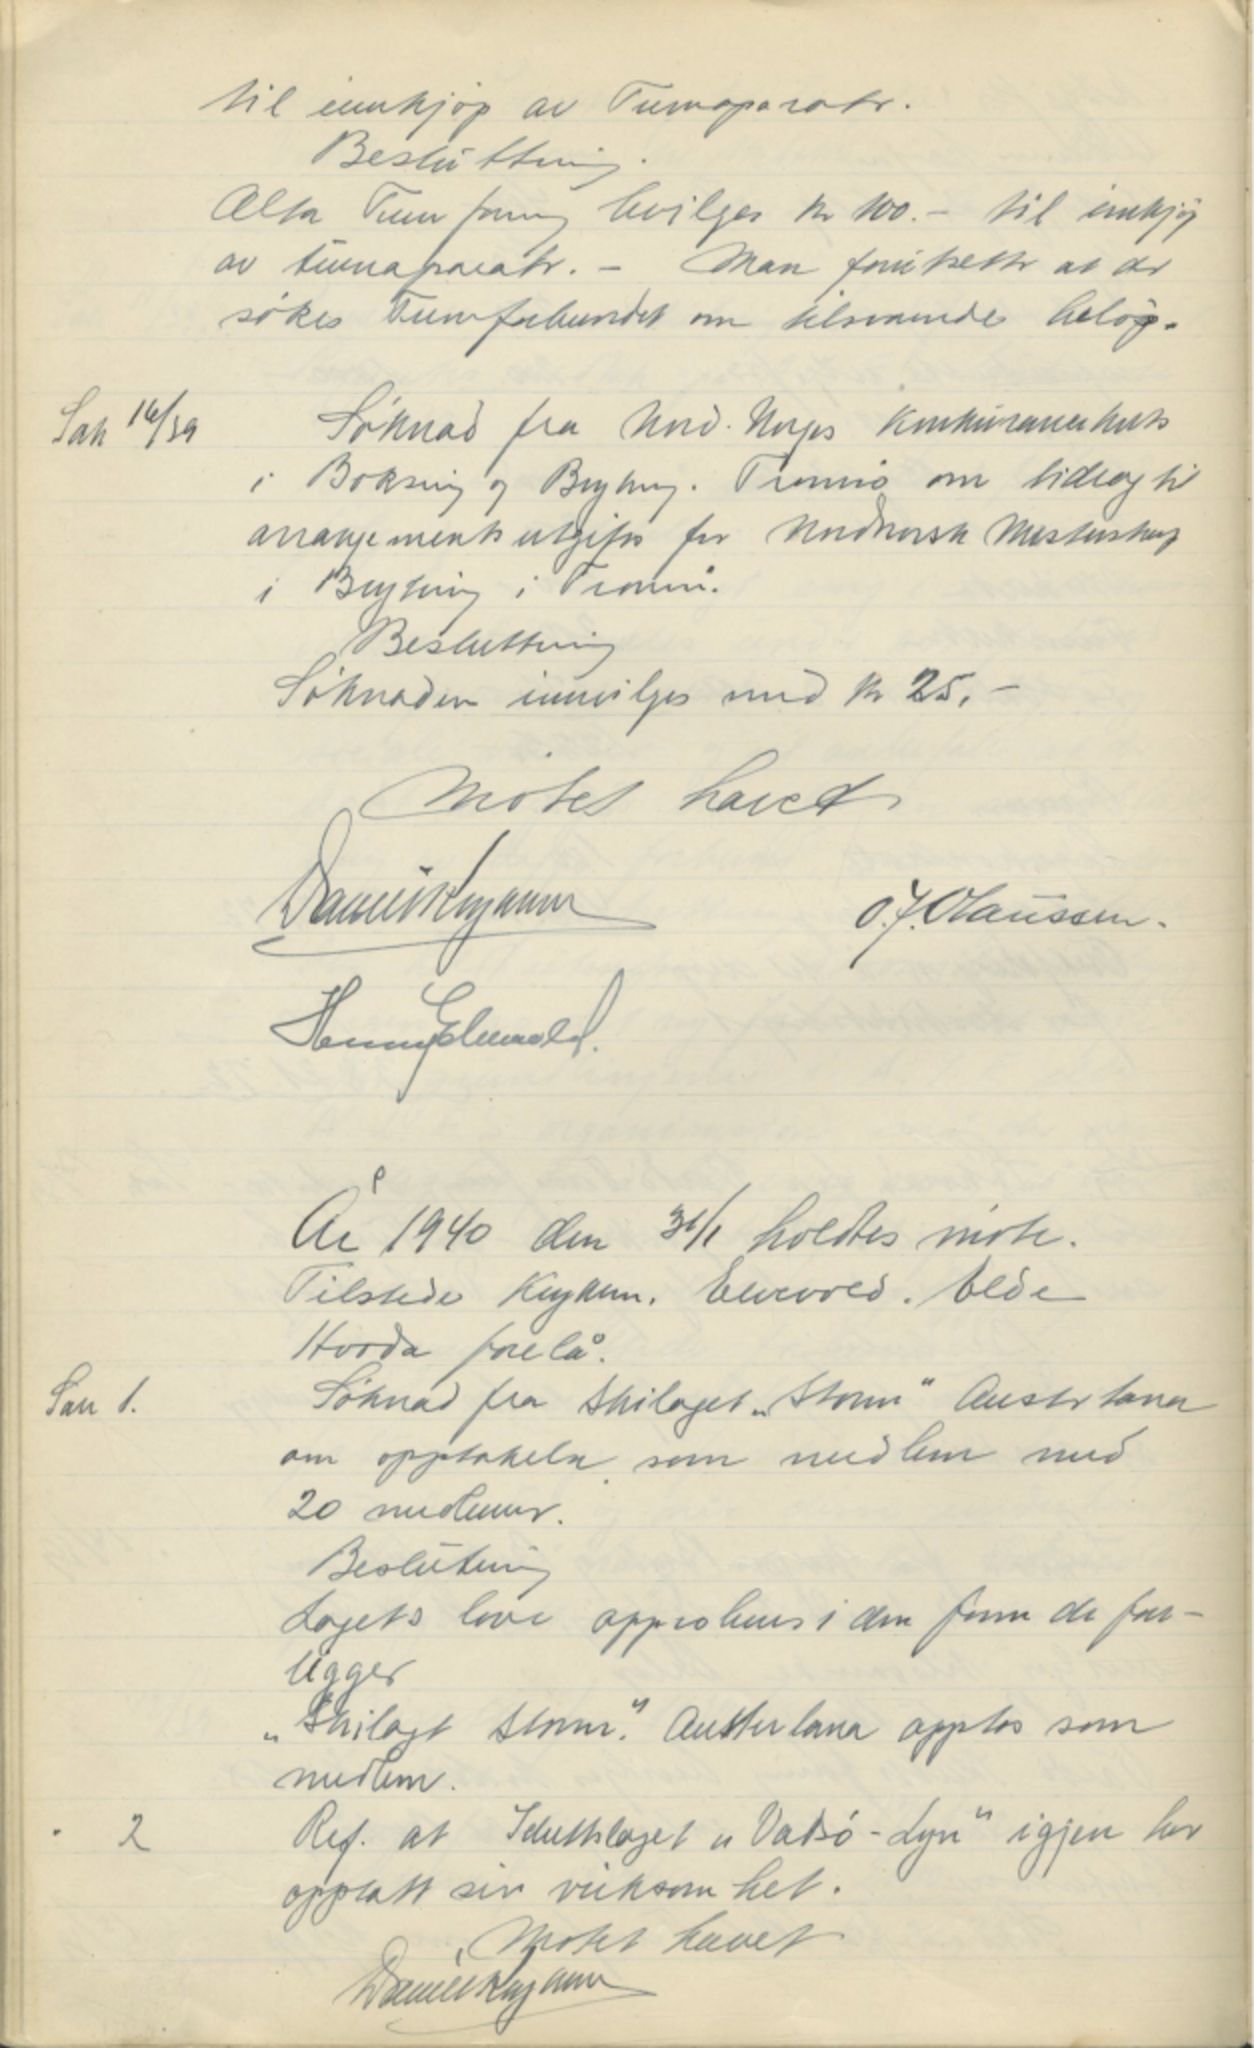 til innkjøp av Turnaparatr.
Besluttning.
Alta Turnforning bevilges kr 100.- til innkjøp
av turnaparatr. - Man forutsettr at der
søkes Turnforbundet om tilsvarende beløp.
Sak 16/39 Søknad fra Nord-Norges Konkuransekrets
i Boksing og Bryting. Tromsø om bidrag til
arrangementsutgifter for Nordnorsk Mesterskap
i Bryting i Tromsø.
Besluttning
Søknaden innvilges med kr 25.-
Møtet hævet
O. J. Olaussen.
Henry
År 1940 den 31/1 holdtes møte.
Tilstede Elvevold. Elde
Hvorda forelå.
Sak 1. Søknad fra Skilaget „Storm" Austertana
om opptakelse som medlem med
20 medlemmer.
Beslutning
Lagets lover approberes i den form de fore-
ligger
„Skilaget Storm". Austertana opptas som
medlem.
" 2 Ref. at Idrettslaget „Vadsø-Lyn" igjen har
opptatt sin virksomhet.
Møtet hævet